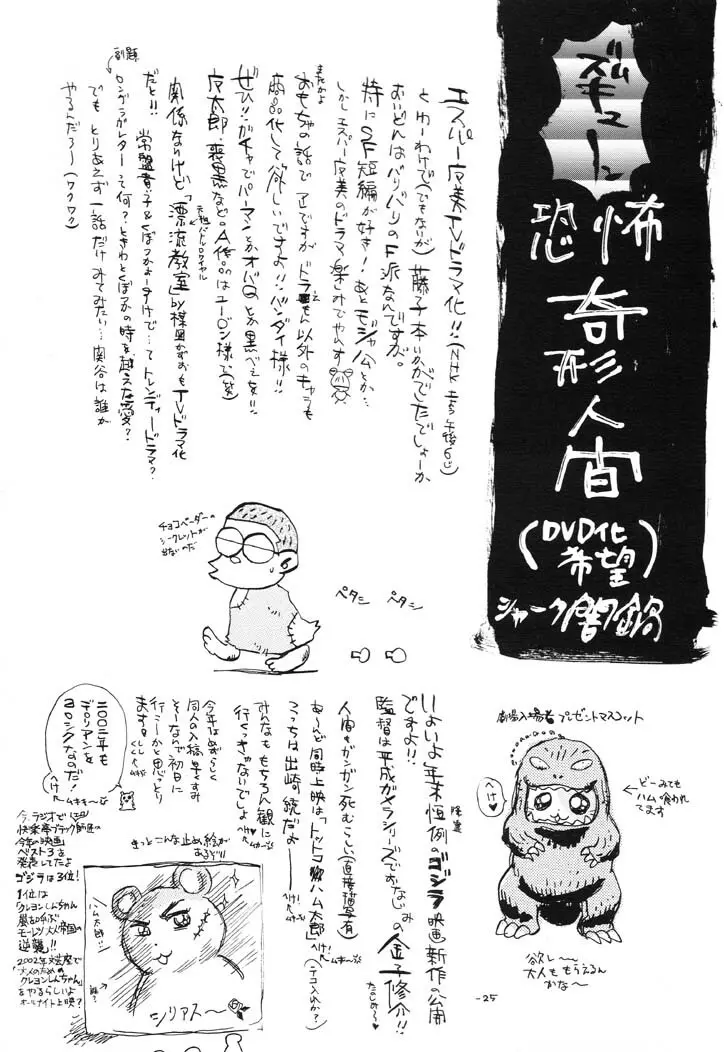 ズキューム
恐怖
奇形人間
(DVD化希望)
シャーク闇鍋
エスパー魔美TVドラマ化!!(NHK 午後6じ)
とゆーわけで(でもないが)藤子本いかがでしたでしょーか
おいどんはバリバリのF派なんですが。
特にSF短編が好き!あとモジャ公とか…
しかしエスパー魔美のドラマ楽しみでやんす
またかよ
おもちゃの話で 正ですが ドラえもん以外のキャラも
商品化して欲しいですよ!!バンダイ様!!
ぜひ!!ガチャでパーマンとかオバQとか黒べえを!!
魔太郎、喪黒などのA作品はユージン様で(笑)
関係ないけど「漂流教室」by楳図かずおもTVドラマ化
元祖バトルロワイヤル
だと!! 常盤貴子&くぼづかよーすけで…てトレンディードラマ?
副題
ロングラブレターって何?ときわとくぼづかの時を越えた愛?
でも とりあえず一話だけみてみたい…関谷は誰が
やるんだろー(ワクワク)
チョコベーダーの
シークレットが
出ないのだ
ペタシ
ペタシ
劇場入場者プレゼントマスコット
へけ♥
どーみても
ハム喰われ
てます
欲し〜
大人ももらえるん
かな〜
いよいよ年末恒例のゴジラ映画新作の公開
ですよ!!
監督は平成ガメラシリーズでおなじみの金子修介!!
たのしみ〜♥
人間もガンガン死むらしい(直接描写有)
あ〜んど同時上映は「トットコハム太郎」
へけ!
こっちは出崎 統だよ――
みんなももちろん観に
行くっきゃないでしょ
へけ♥
今年はめずらしく
同人の入稿早くすみ
そーなんで初日に
行こーかと思っとり
ます。
二〇〇二年も
デロリアンを
ヨロシクなのだ!
へけ!
ムキキ〜
今、ラジオで
快楽亭ブラック師匠の
今年の映画
ベスト3を
発表してたよ
ゴジラは3位!
1位は
クレヨンしんちゃん
嵐を呼ぶ
モーレツ大人帝国の
逆襲!!
2002年文芸座で
"大人のための
クレヨンしんちゃん"
をやるらしいよ
オールナイト上映?
きっとこんな止め絵が
あるぞ!!
ハム太郎
誰?
シリアス〜
-25